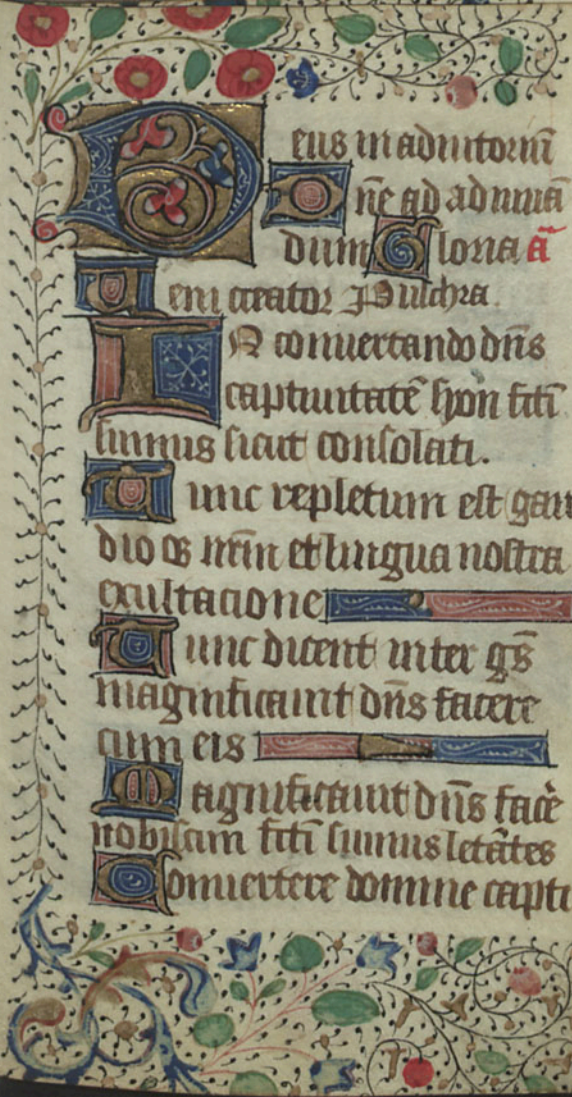 Deus in adiutoriũ
Dñe ad adiuuã
dum Gloria ã
Veni creator Pulchra
IN conuertando dñs
captiuitatẽ syon fcti
sumus sicut consolati.
Tunc repletum est gau
dio os nrm̃ et lingua nostra
exultacione
Tunc dicent inter gs̃
magnificauit dñs facere
cum eis
Magnificauit dñs facẽ
nobiscum fcti sumus letãtes
Conuertere domine capti